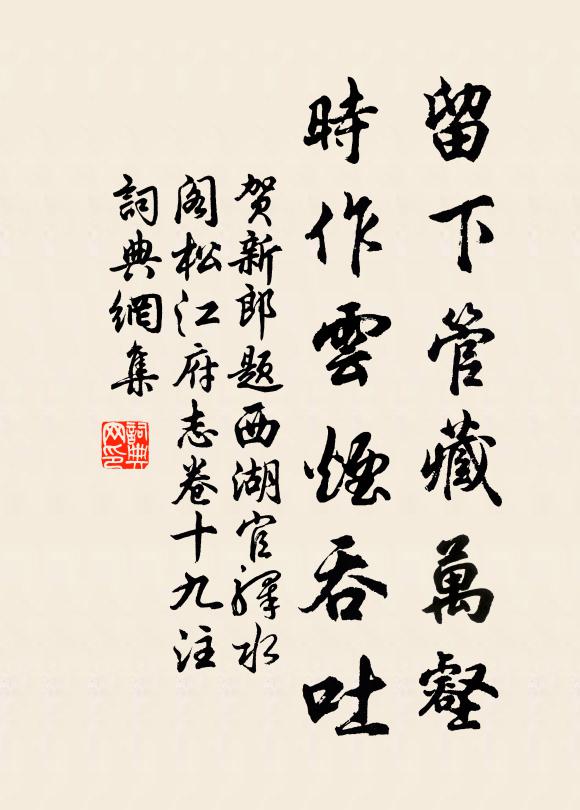 留下管藏萬壑
時作雲煙吞吐
贺新郎题西湖官驛水
阁松江府志卷十九注
詞典網集
詞典网印